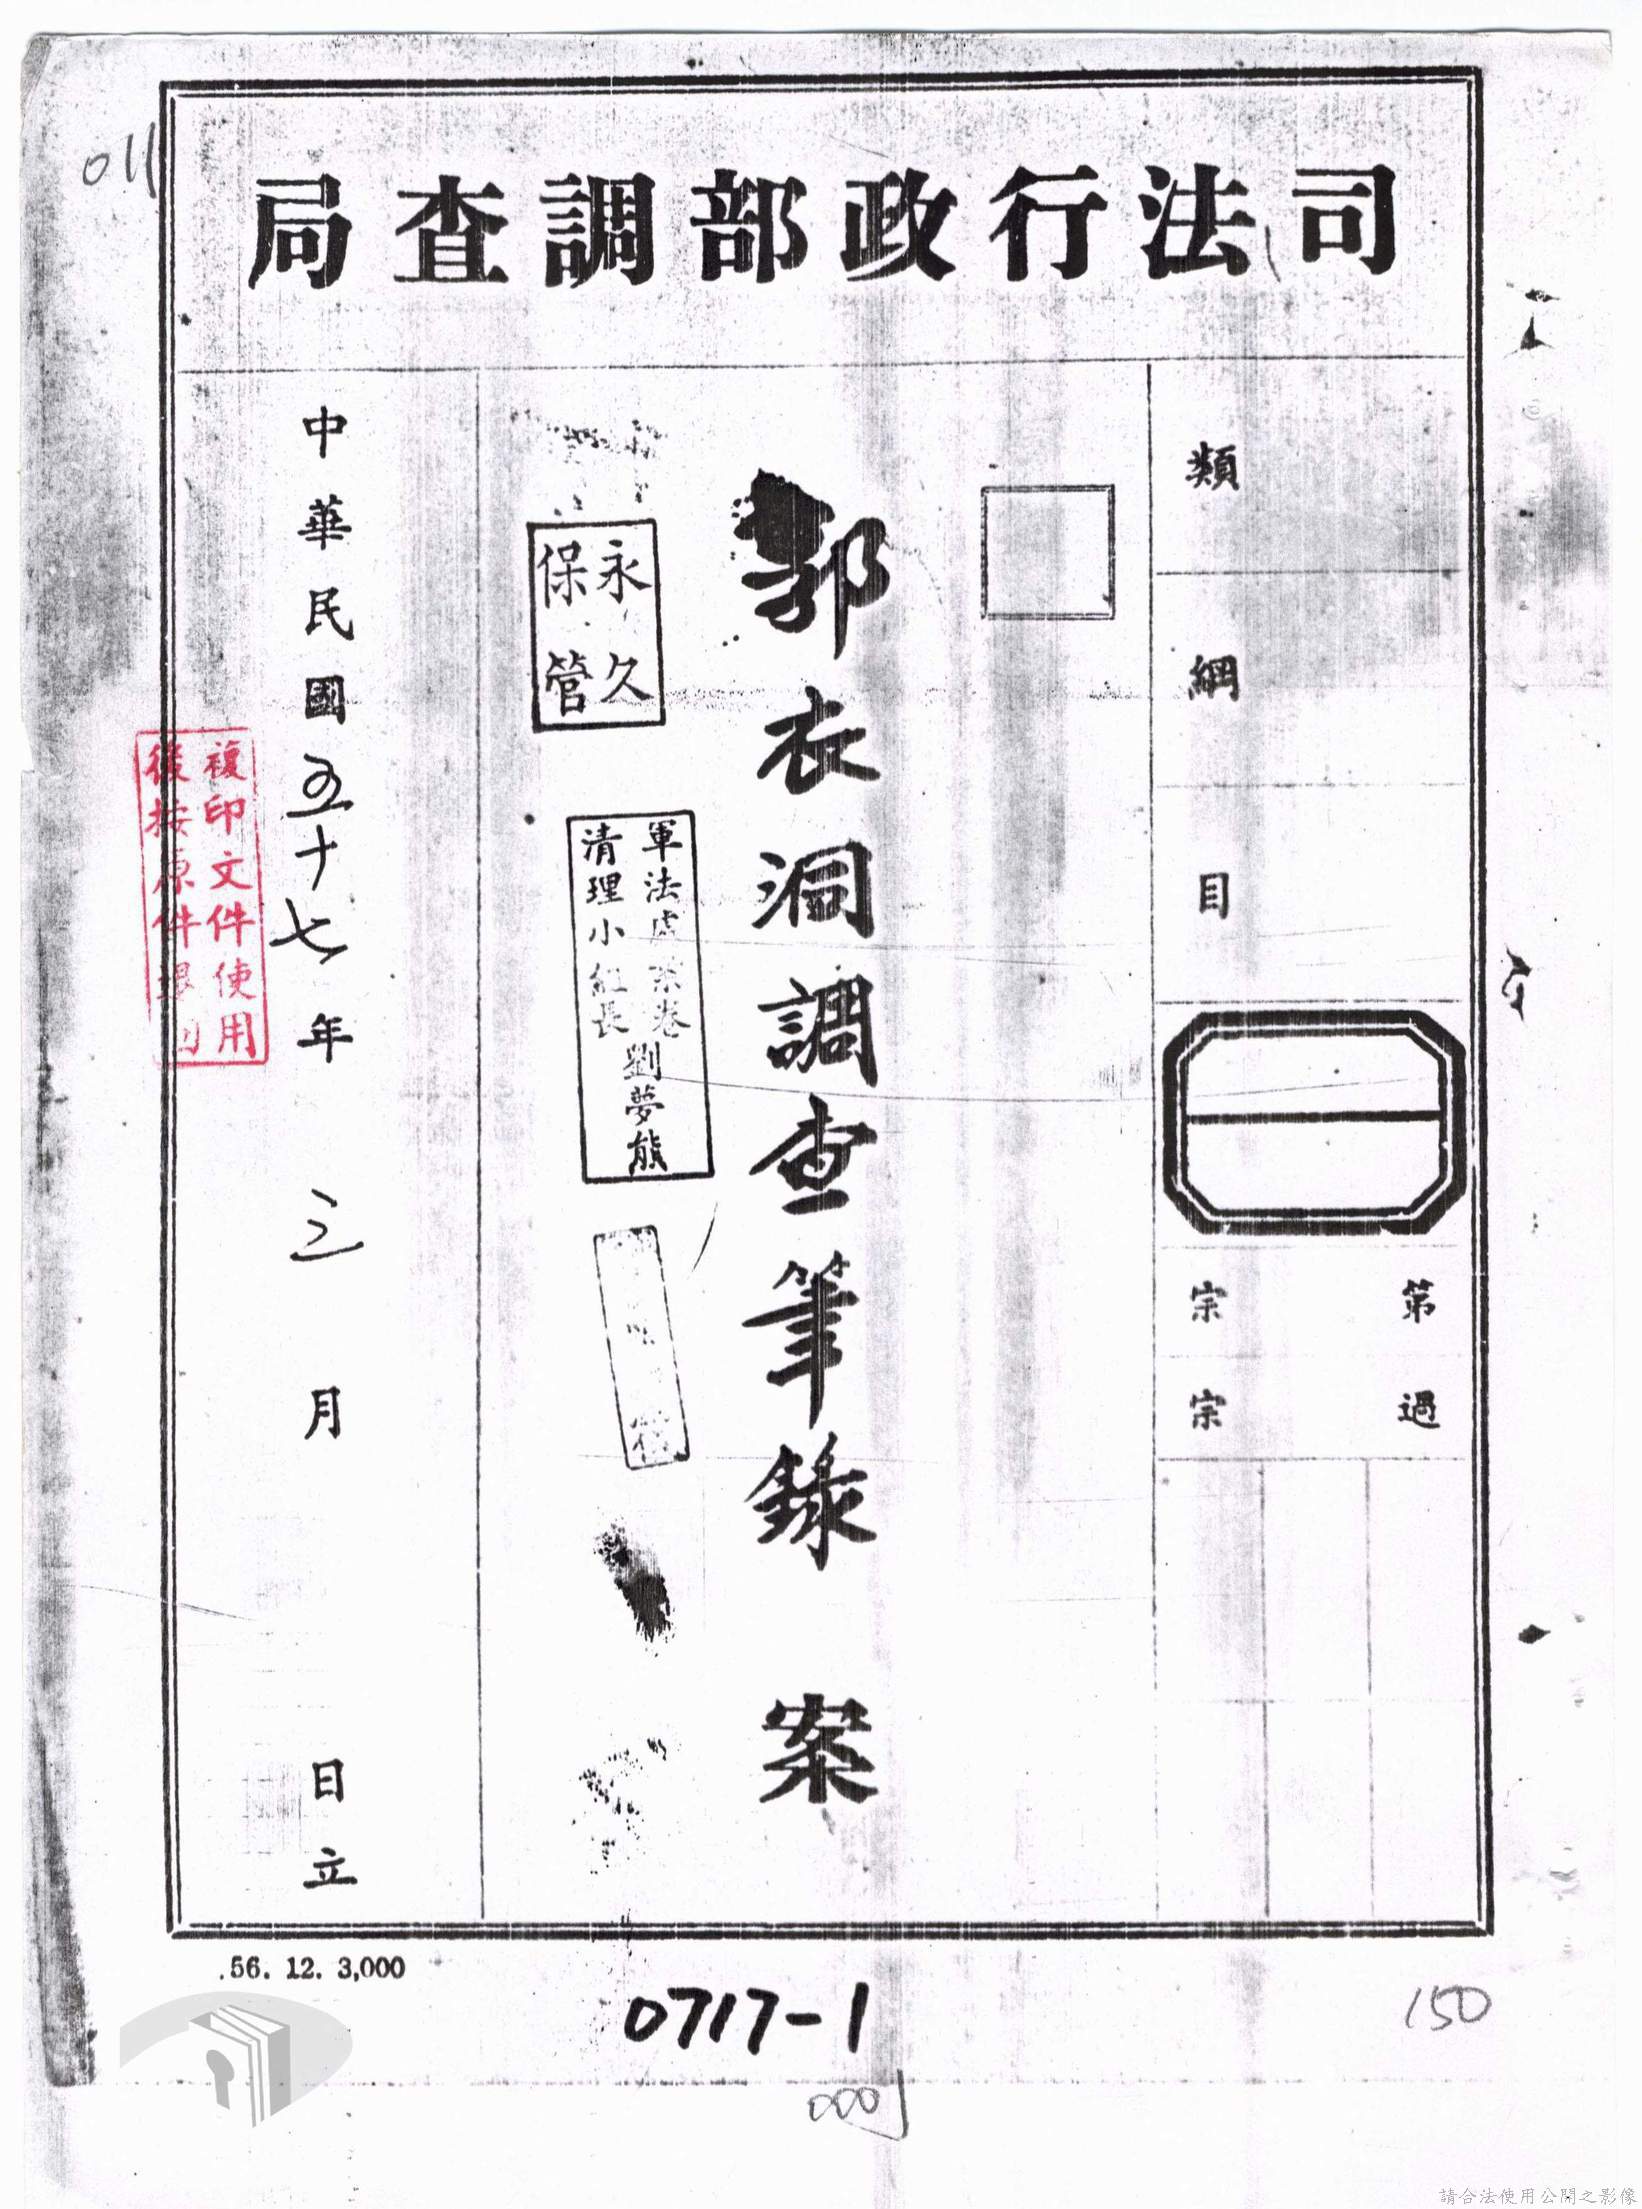 011
司法行政部調查局
類
綱
目
第 宗
過 宗
郭衣洞調查筆錄 案
永久
保管
軍法處案卷
清理小組長
劉夢熊
中華民國五十七年 三 月 日立
複印文件使用
後按原件退回
.56. 12. 3,000
0717-1
150
0001
請合法使用公開之影像